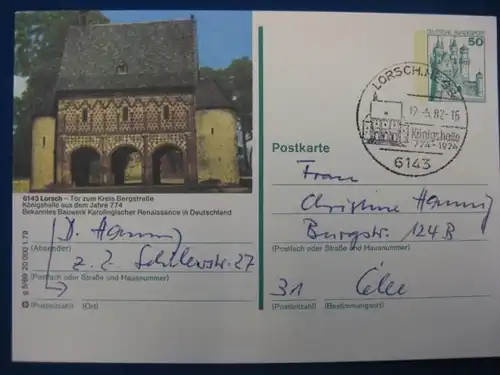 DEUTSCHE BUNDESPOST
50
LORSCH
12.-5.82-16
Königshalle
774-1974
6143
6143 Lorsch – Tor zum Kreis Bergstraße
Königshalle aus dem Jahre 774
Bekanntes Bauwerk Karolingischer Renaissance in Deutschland
Postkarte
Frau
Christine
Burgstr. 124 B
(Postfach oder Straße und Hausnummer)
31 Celle
(Postleitzahl) (Bestimmungsort)
D.
(Absender)
z. Z.
(Postfach oder Straße und Hausnummer)
(Postleitzahl) (Ort)
20 000 1.79